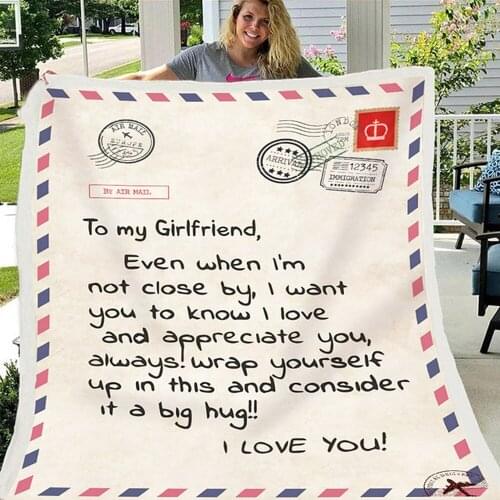 AIR MAIL
LONDON
ARRIVAL
12345
IMMIGRATION
BY AIR MAIL
To my Girlfriend,
Even when I'm
not close by, I want
you to know I love
and appreciate you,
always! Wrap yourself
up in this and consider
it a big hug!!
I LOVE YOU!